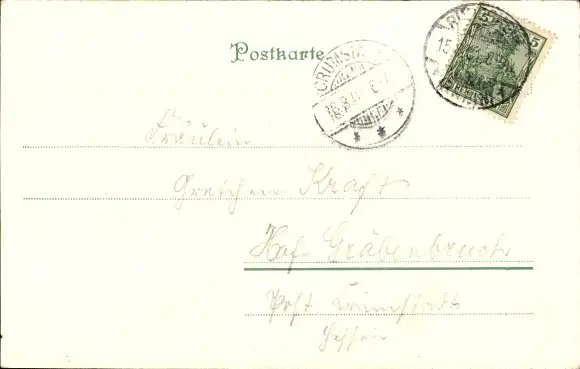 Postkarte
CRUMSTA
5 5
Fräulein
Gretchen Kraft
Hof-Gräbenbruch
Post Crumstadt
Hessen